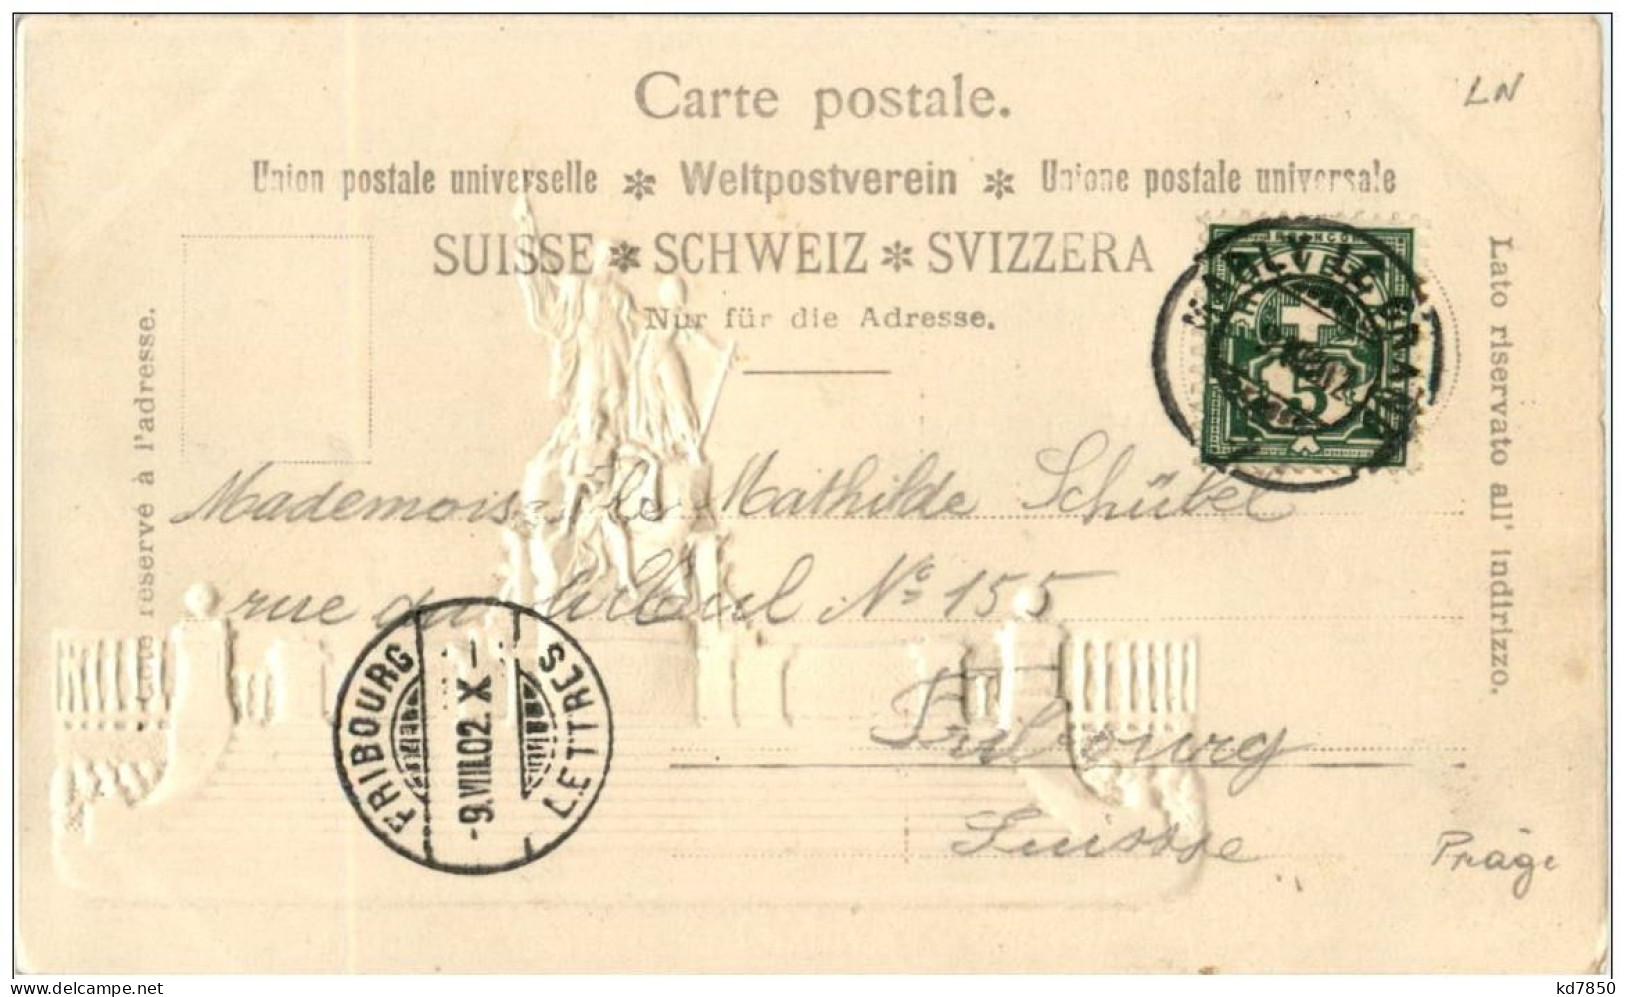 Carte postale.
LN
Union postale universelle * Weltpostverein * Unione postale universale
SUISSE * SCHWEIZ * SVIZZERA
Nur für die Adresse.
réservé à l'adresse.
Lato riservato all' indirizzo.
FRANCO
HELVETIA
5
MARLY LE GRAND
Mademoiselle Mathilde Schübel
rue du Tilleul No 155
Fribourg
Suisse
FRIBOURG
-9.VIII.02.X-
LETTRES
Präge
kd7850